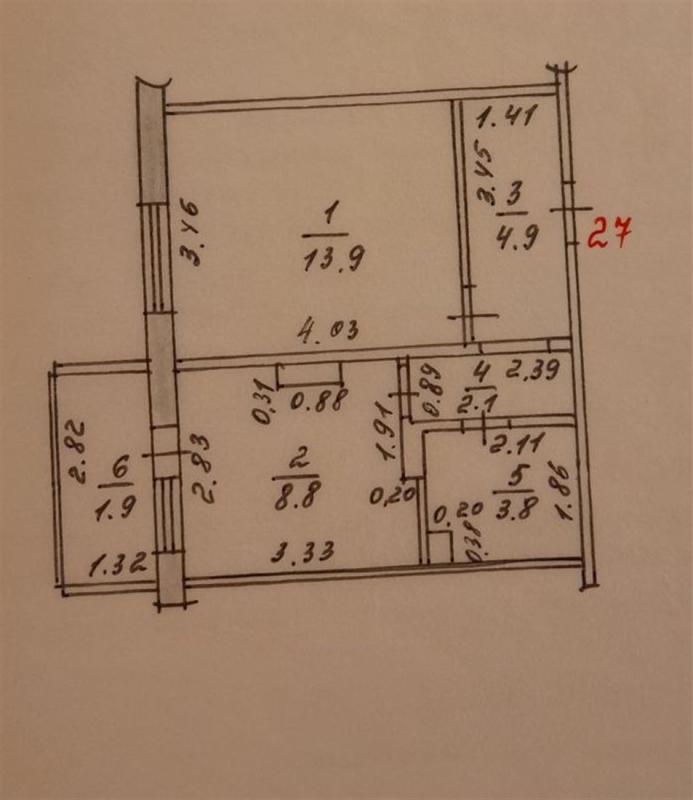 1.41
3.45
3
4.9
27
3.46
1
13.9
4.03
0,31
0.88
0.89
4
2.1
2.39
1.91
2.11
2.82
6
1.9
1.32
2.83
2
8.8
0,20
3.33
5
3.8
1.86
0,20
0,38